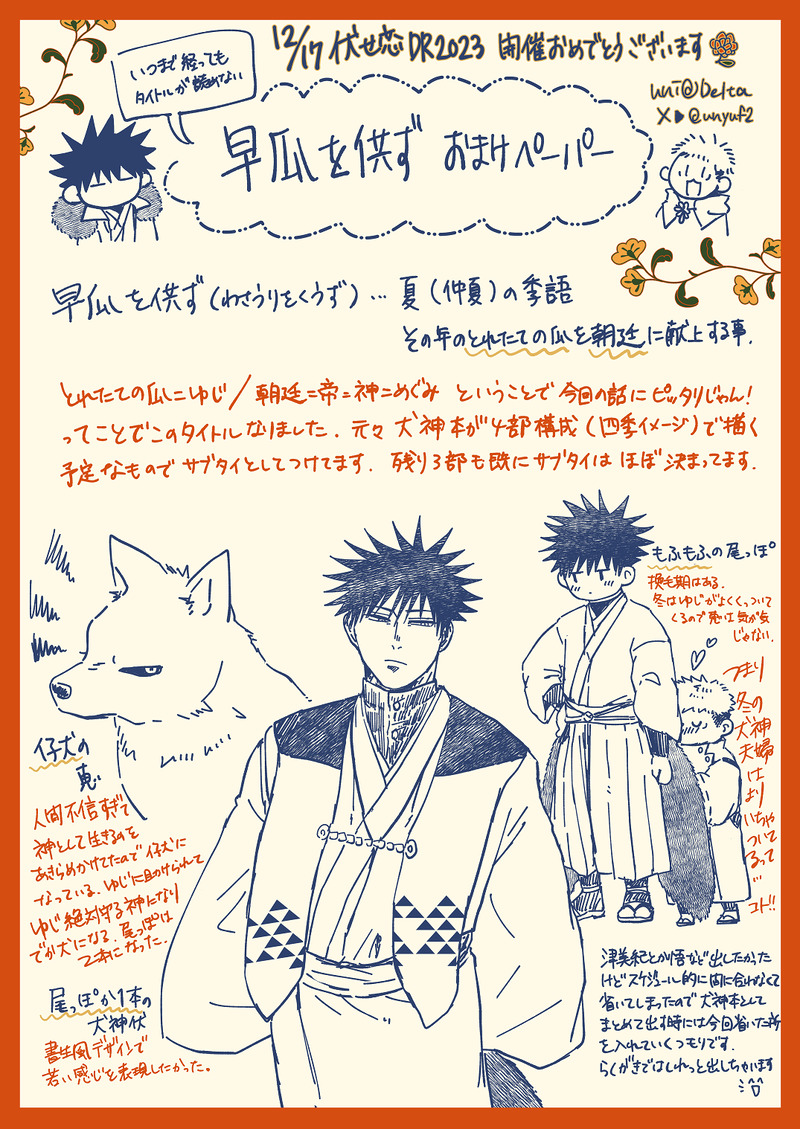 12/17 伏せ恋DR2023 開催おめでとうございます
いつまで経っても
タイトルが読めない
uni@Delta
X▶@unyuf2
早瓜を供ず おまけペーパー
早瓜を供ず(わさうりをくうず)… 夏(仲夏)の季語
その年のとれたての瓜を朝廷に献上する事.
とれたての瓜=ゆじ/朝廷=帝=神=めぐみ ということで 今回の話に ピッタリじゃん!
ってことでこのタイトルなりました. 元々 犬神本が4部構成(四季イメージ)で描く
予定なもので サブタイとしてつけてます. 残り3部も既にサブタイは ほぼ 決まってます.
もふもふの尾っぽ
換毛期はある.
冬はゆじがよくくっついて
くるので 恵は気が気
じゃない.
つまり
冬の
犬神
夫婦
は
より
いちゃ
ついて
るって
…
コト!!
仔犬の
恵
人間不信すぎて
神として生きるのを
あきらめかけてたので 仔犬に
なっている. ゆじに助けられて
ゆじ絶対守る神になり
でか犬になる. 尾っぽは
2本になった.
尾っぽが1本の
犬神伏
書生風デザインで
若い感じを表現したかった。
津美紀とか悟など出したかった
けどスケジュール的に間に合わなくて
省いてしまったので 犬神本として
まとめて出す時には今回省いた所
を入れていくつもりです.
らくがきではしれっと出しちゃいます